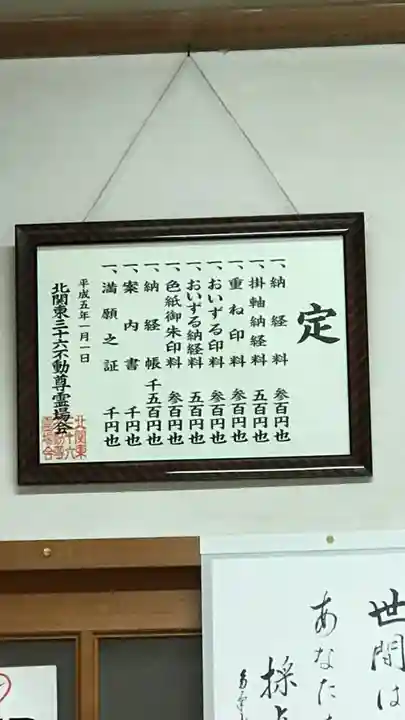 定
一、納経料 参百円也
一、掛軸納経料 五百円也
一、重ね印料 参百円也
一、おいずる印料 参百円也
一、おいずる納経料 五百円也
一、色紙御朱印料 参百円也
一、納経帳 千五百円也
一、案内書 千円也
一、満願之証 千円也
平成五年一月一日
北関東三十六不動尊霊場会
世間は
あなた
採点